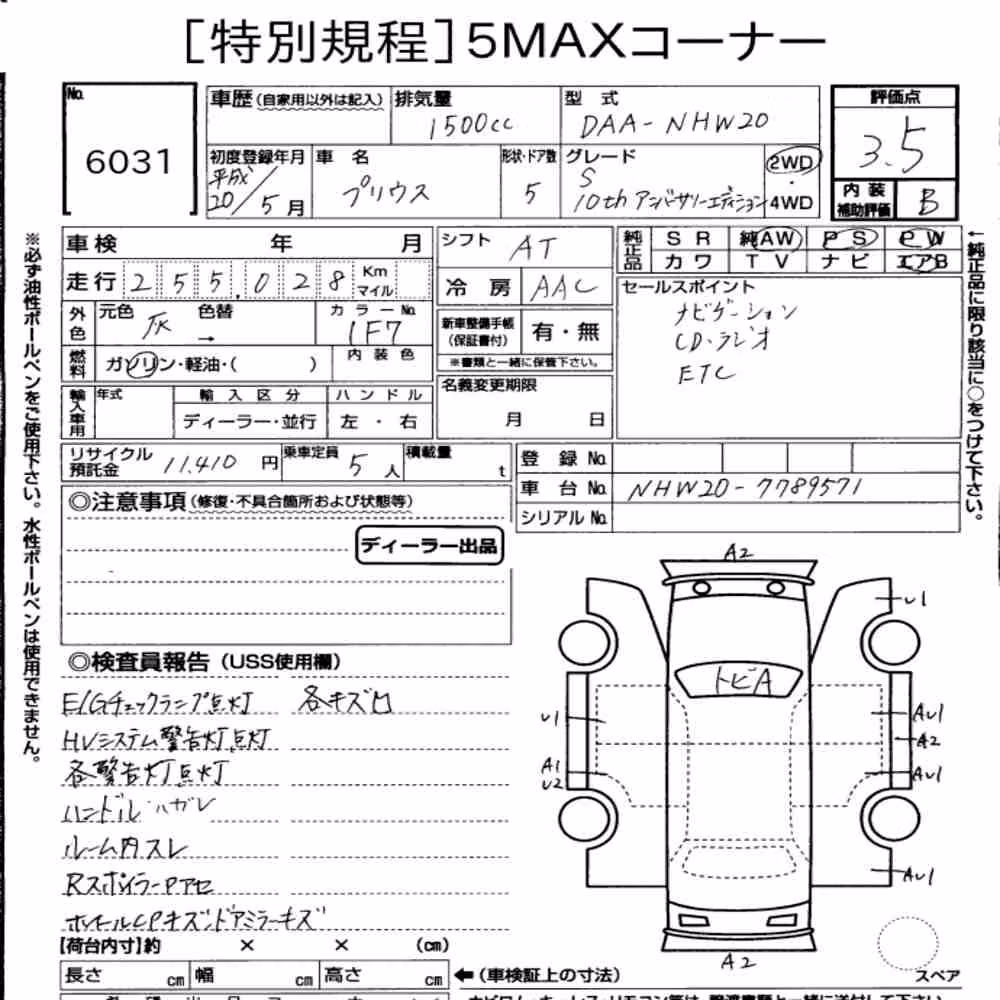 [特別規程]5MAXコーナー
No. 6031
車歴(自家用以外は記入)
排気量 1500cc
型式 DAA-NHW20
評価点 3.5
内装補助評価 B
初度登録年月 平成20/5月
車名 プリウス
形状・ドア数 5
グレード S 10thアニバーサリーエディション
2WD・4WD
車検 年 月
シフト AT
純正品 SR 純AW PS PW
カワ TV ナビ エアB
走行 255,028 Km マイル
冷房 AAC
セールスポイント
ナビゲーション
CD・ラジオ
ETC
外色 元色 灰 → 色替 カラーNo. 1F7
新車整備手帳(保証書付) 有・無
※書類と一緒に保管下さい。
燃料 ガソリン・軽油・( ) 内装色
名義変更期限 月 日
輸入車用 年式 輸入区分 ハンドル
ディーラー・並行 左・右
リサイクル預託金 11,410円
乗車定員 5人
積載量 t
登録No.
車台No. NHW20-7789571
シリアルNo.
←純正品に限り該当に○をつけて下さい。
※必ず油性ボールペンをご使用下さい。水性ボールペンは使用できません。
◎注意事項(修復・不具合箇所および状態等)
ディーラー出品
◎検査員報告(USS使用欄)
E/Gチェックランプ点灯 各キズ凹
HVシステム警告灯点灯
各警告灯点灯
ハンドルハガレ
ルーム内スレ
RスポイラーPアセ
ホイールCPキズ ドアミラーキズ
A2
U1
トビA
U1
AU1
A2
A1
U2
AU1
AU1
A2
スペア
【荷台内寸】約 × × (cm)
長さ cm 幅 cm 高さ cm
←(車検証上の寸法)